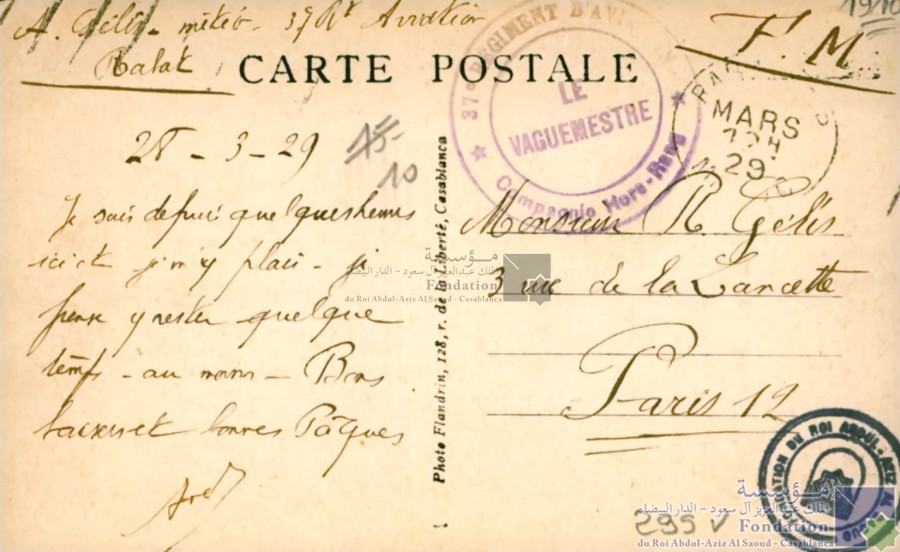 A. Gélis - météo - 37 Rt Aviation
Rabat
F.M.
1910
CARTE POSTALE
37e RÉGIMENT D'AVI
LE
VAGUEMESTRE
Compagnie Hors-Rang
MARS
29
28 - 3 - 29
15-
10
Je suis depuis quelques heures
ici et j'm'y plais - j'y
pense y rester quelque
temps - au moins - Bons
baisers et bonnes Pâques
André
Photo Flandrin, 128, r. de la Liberté, Casablanca
Monsieur R. Gélis
3 rue de la Lancette
Paris 12
مؤسسة
الملك عبدالعزيز آل سعود - الدار البيضاء
Fondation
du Roi Abdul-Aziz Al Saoud - Casablanca
FONDATION DU ROI ABDUL-AZIZ AL SAOUD
295 v
مؤسسة
الملك عبدالعزيز آل سعود - الدار البيضاء
Fondation
du Roi Abdul-Aziz Al Saoud - Casablanca